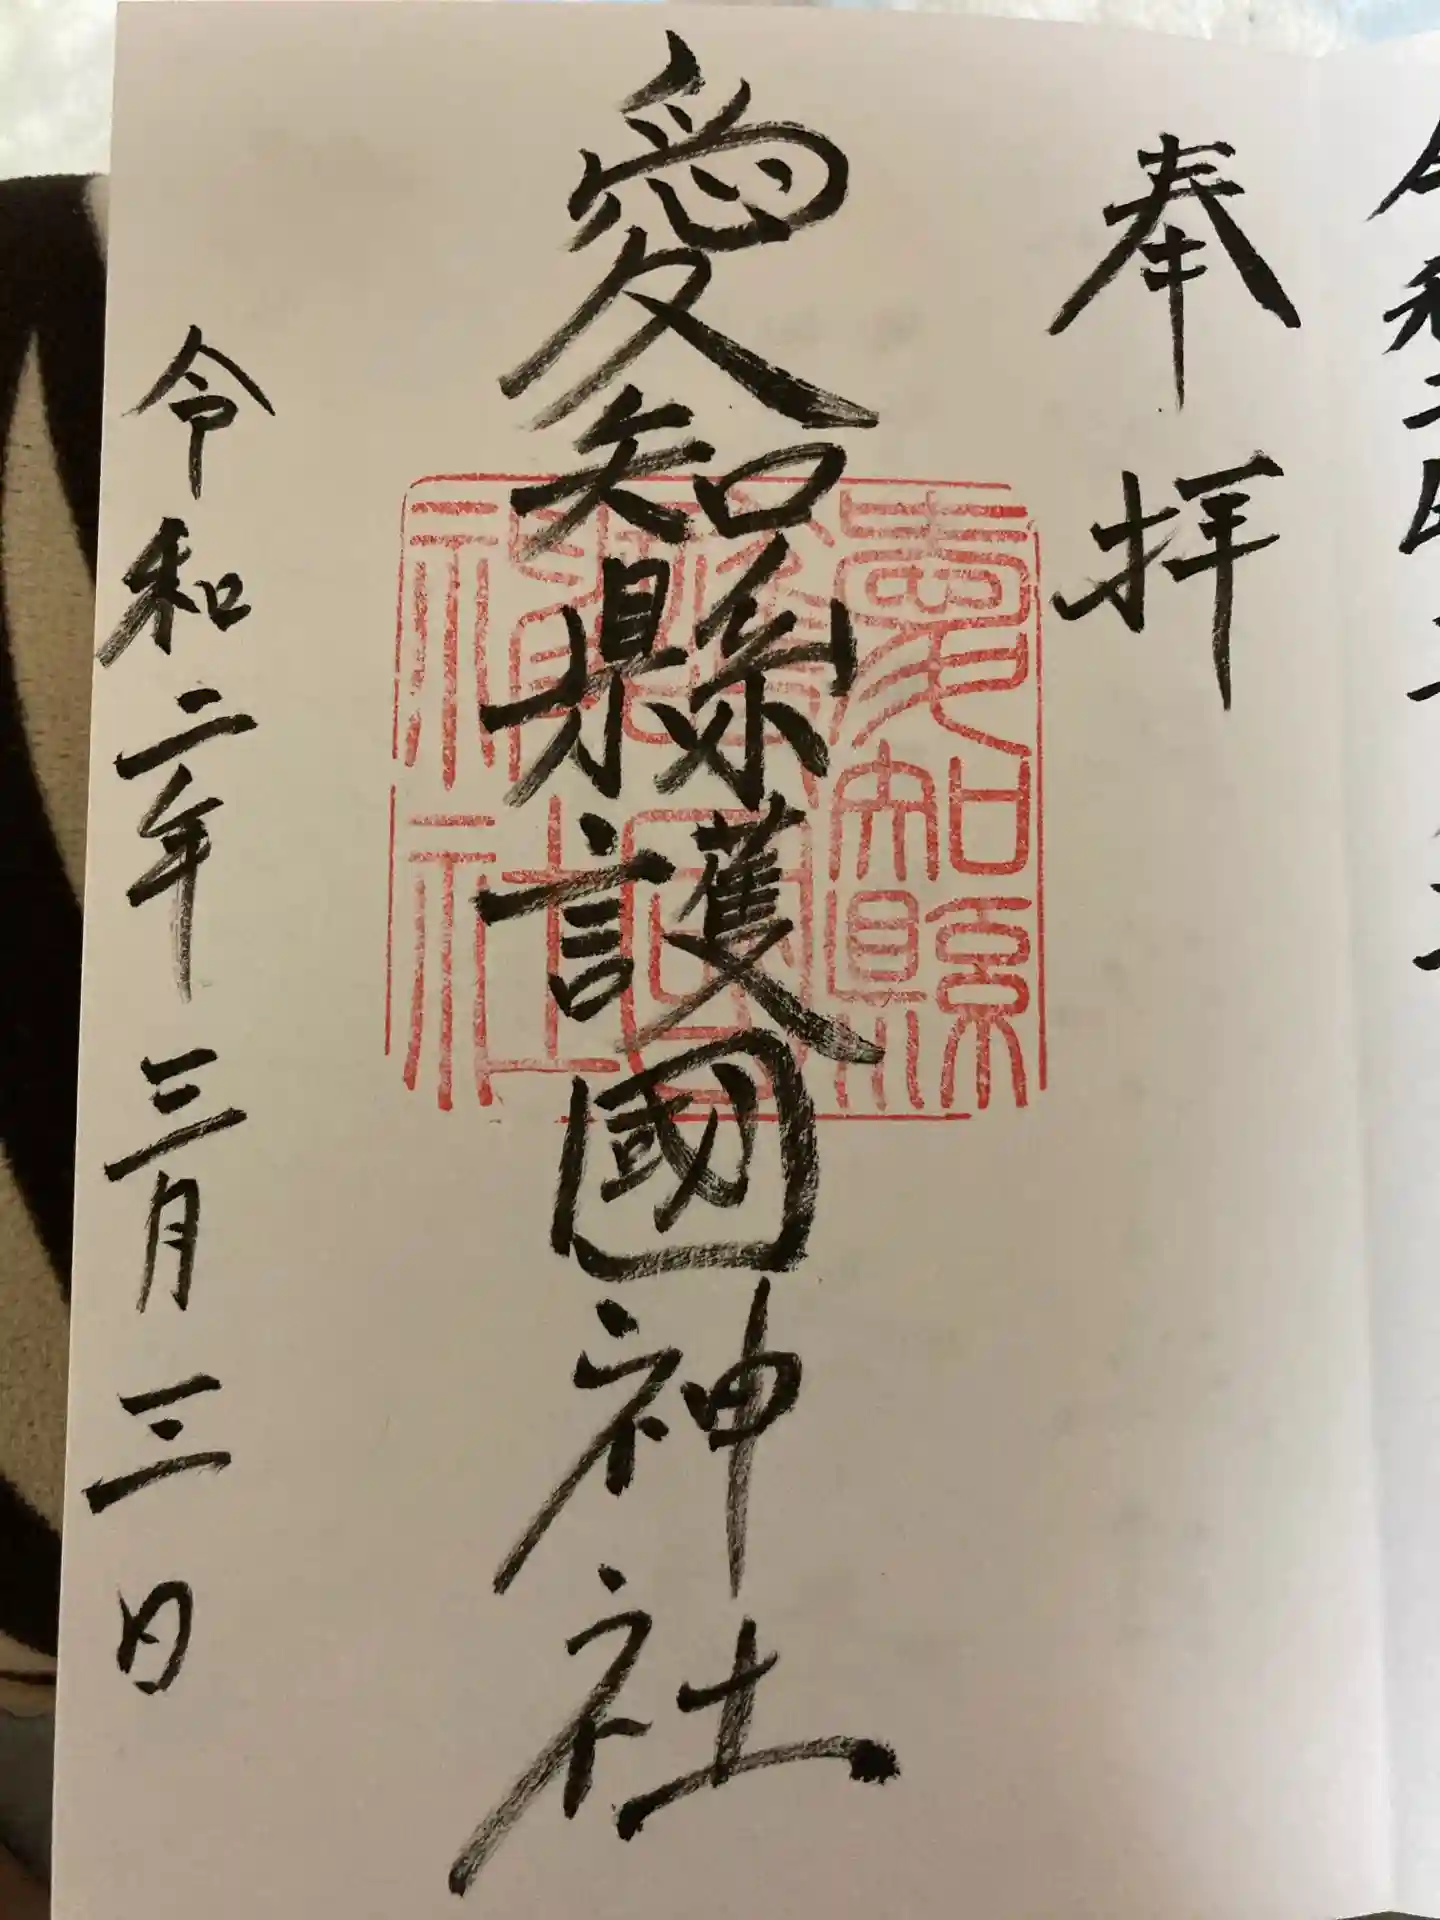 奉拝
愛知縣護國神社
愛知縣護國神社
令和二年三月三日